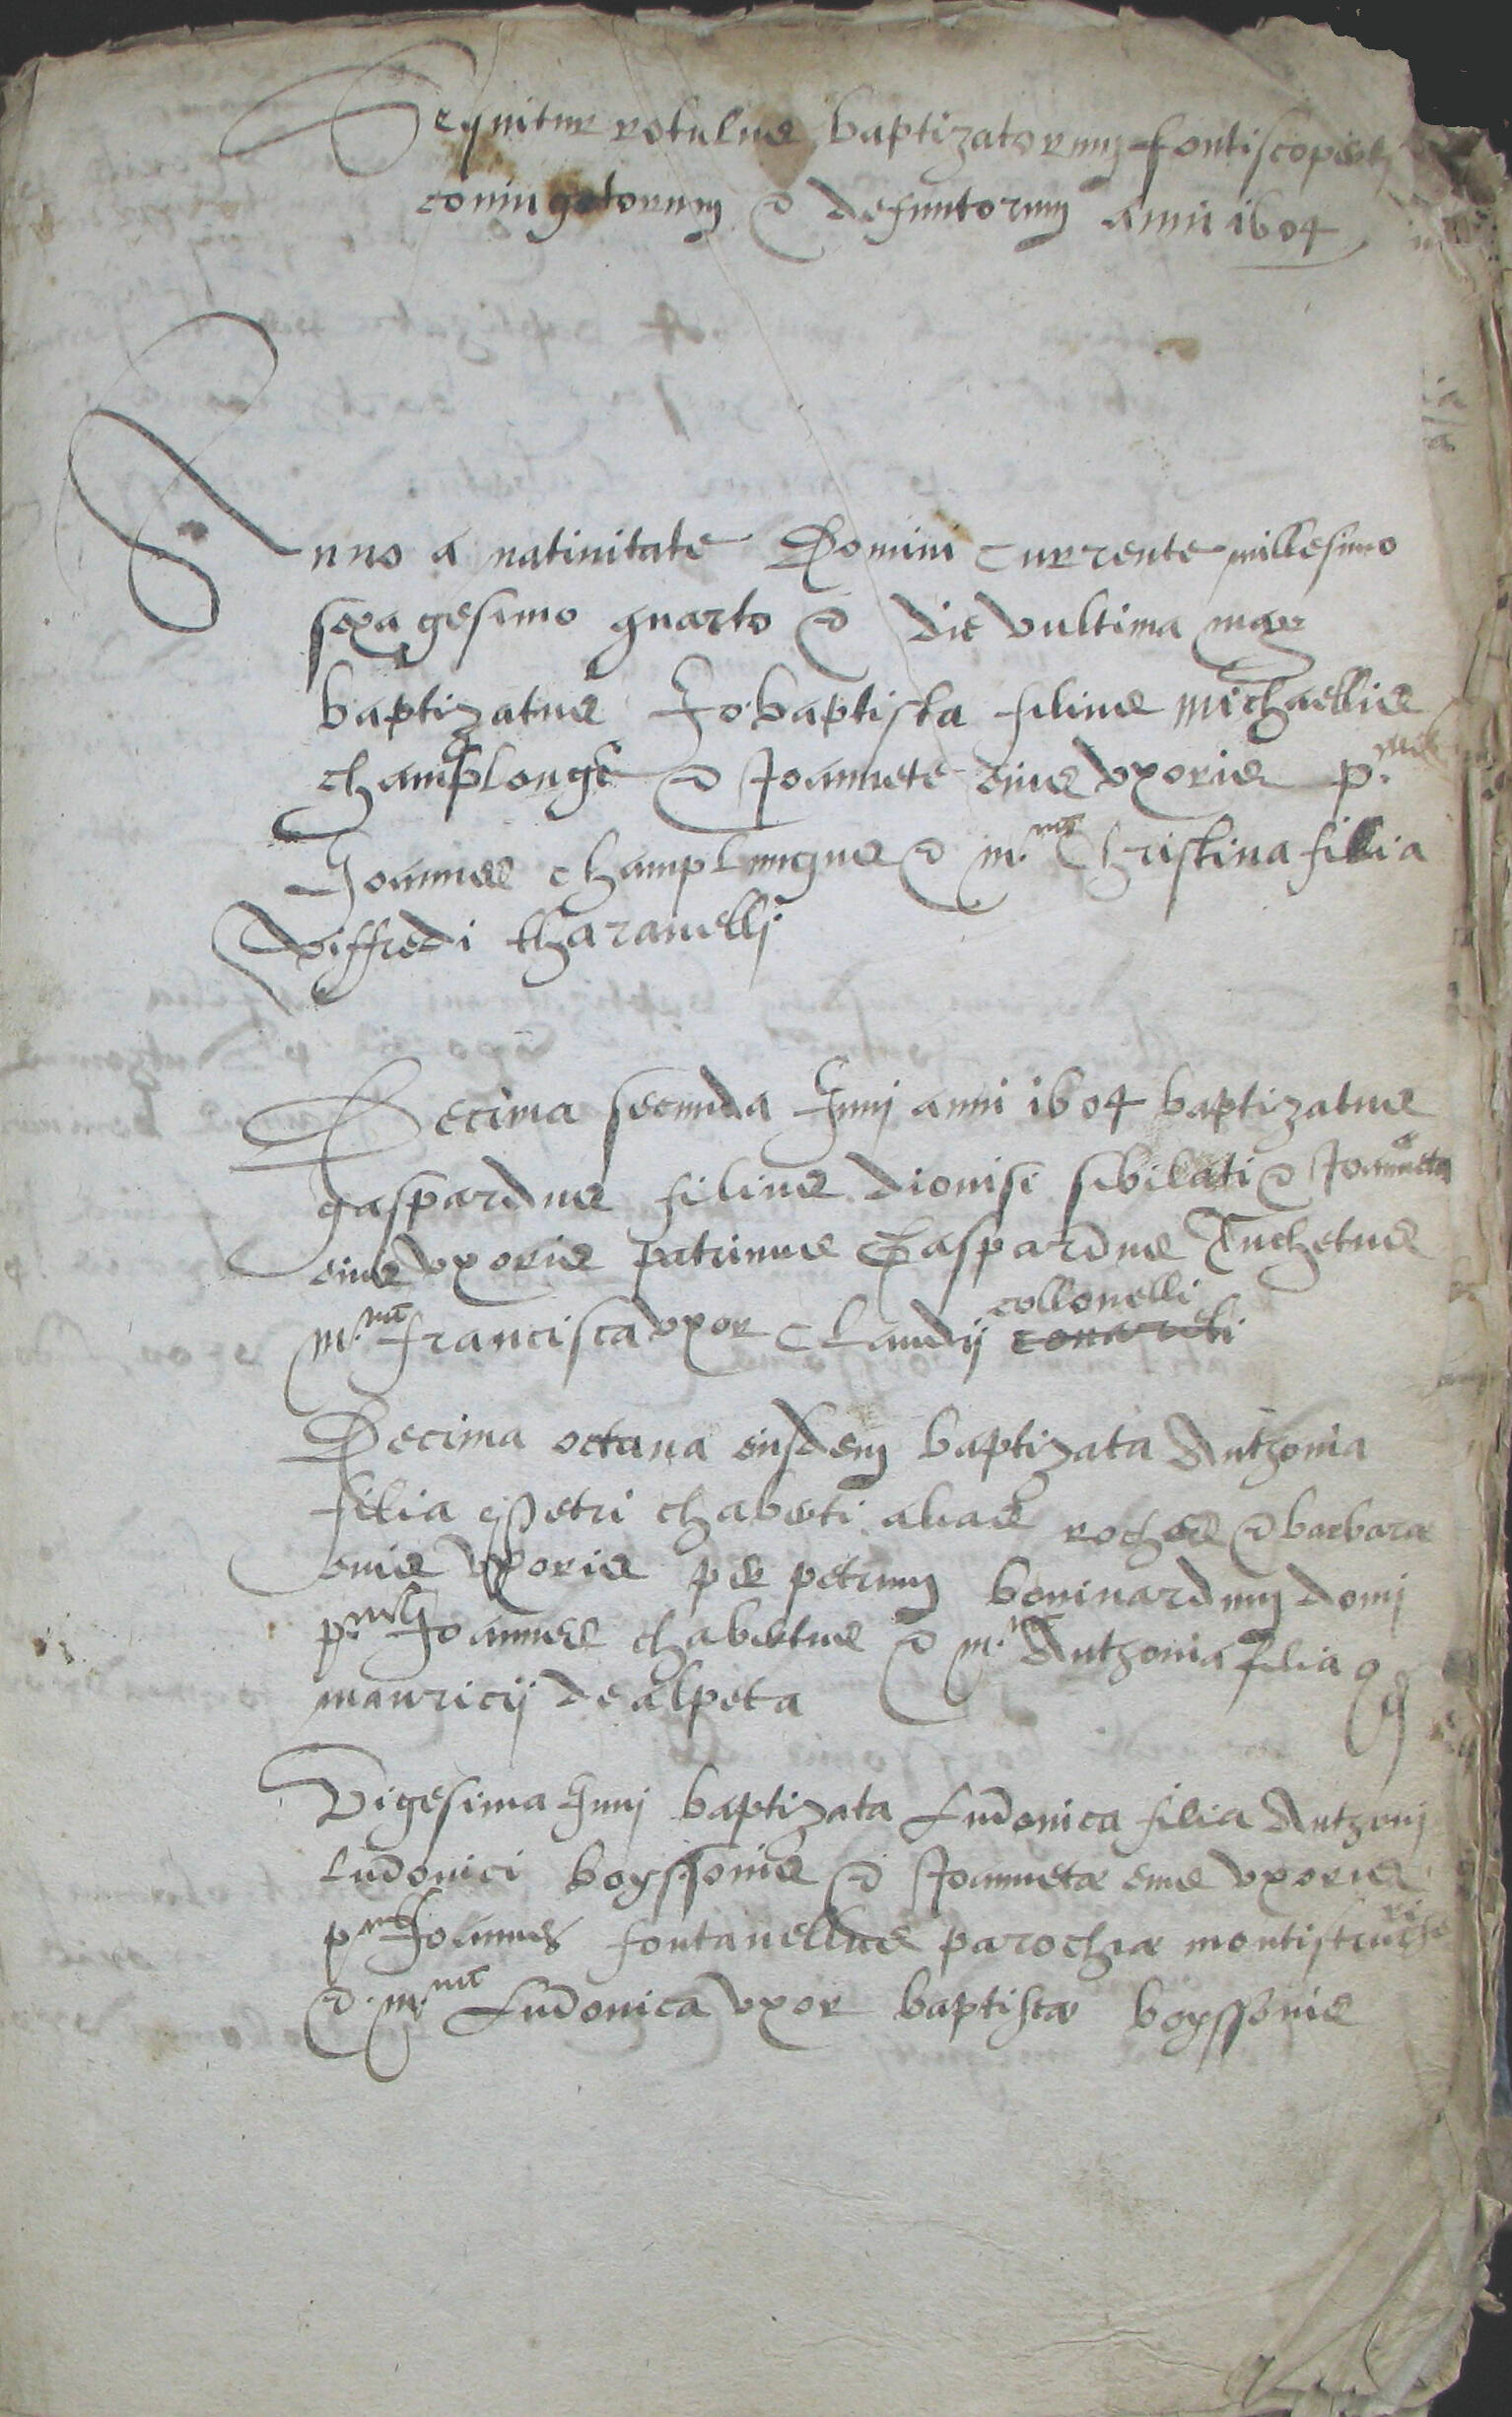 Sequitur rotulus baptizatorum fontiscoopert
coniugatorum & defuntorum anni 1604
Anno a natiuitate Domini currente millesimo
sexagesimo quarto & die vultima may
baptizatus Jo. baptista filius Michaellis
champlongi & Joannete eius vxoris p.nus
Joannes champlungus & m.na Christina filia
Viffredi tharanelli
Decima secunda Junij anni 1604 baptizatus
gaspardus filius dionisi sibilati & Joannetæ
eius vxoris patrinus Gaspardus Tuchetus
m.na francisca vxor Claudij collonelli
Decima octaua eiusdem baptizata Anthonia
filia q Petri chaberti alias roches & barbaræ
eius vxoris per petrum boninardum domi
p.nus Joannes chabertus & m.na Anthonia filia q
mauricij de alpeta
Vigesima Junij baptizata Ludouica filia Anthonij
ludouici boyssonis & Joannetæ eius vxoris
p.nus Joannes fontanellus parochiæ
& m.na Ludouica vxor baptistæ boyssonis